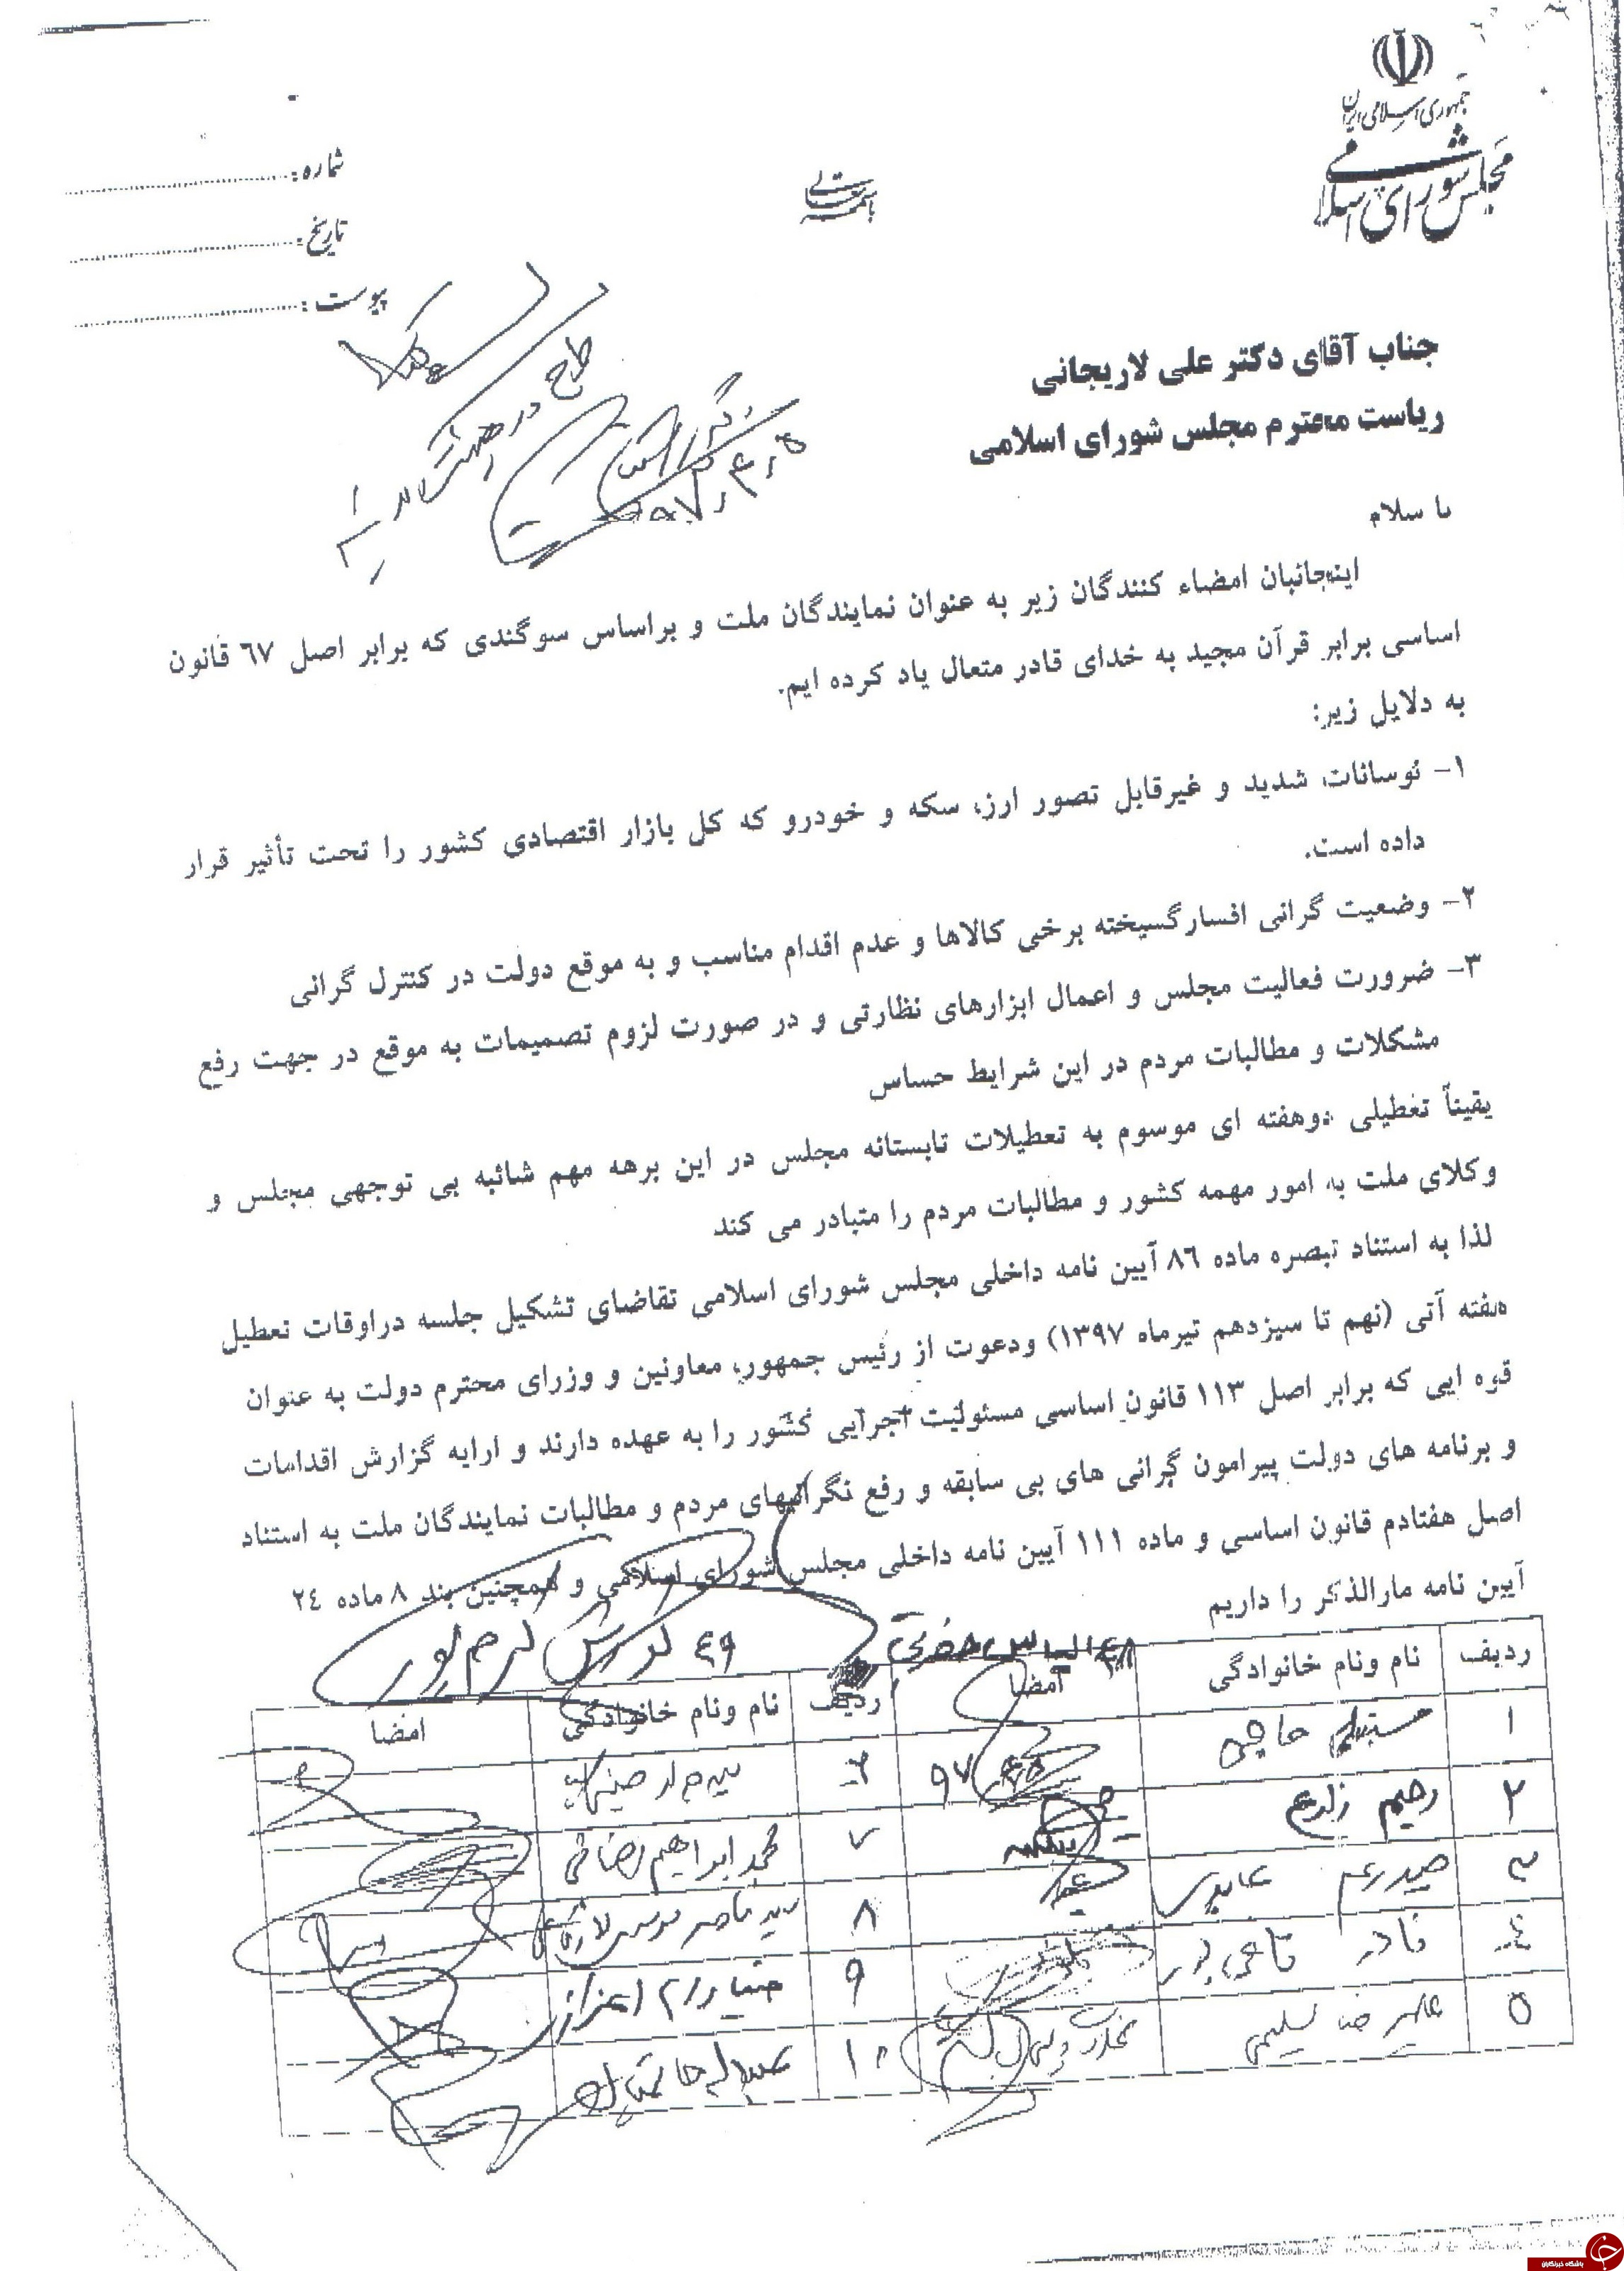 جمهوری اسلامی ایران
مجلس شورای اسلامی
باسمه تعالی
شماره:
تاریخ:
پیوست:
جناب آقای دکتر علی لاریجانی
ریاست محترم مجلس شورای اسلامی
طرح در
با سلام
اینجانبان امضاء کنندگان زیر به عنوان نمایندگان ملت و براساس سوگندی که برابر اصل ٦٧ قانون
اساسی برابر قرآن مجید به خدای قادر متعال یاد کرده ایم.
به دلایل زیر:
۱- نوسانات شدید و غیرقابل تصور ارز، سکه و خودرو که کل بازار اقتصادی کشور را تحت تأثیر قرار
داده است.
۲- وضعیت گرانی افسارگسیخته برخی کالاها و عدم اقدام مناسب و به موقع دولت در کنترل گرانی
۳- ضرورت فعالیت مجلس و اعمال ابزارهای نظارتی و در صورت لزوم تصمیمات به موقع در جهت رفع
مشکلات و مطالبات مردم در این شرایط حساس
یقیناً تعطیلی دوهفته ای موسوم به تعطیلات تابستانه مجلس در این برهه مهم شائبه بی توجهی مجلس و
وکلای ملت به امور مهمه کشور و مطالبات مردم را متبادر می کند
لذا به استناد تبصره ماده ۸٦ آیین نامه داخلی مجلس شورای اسلامی تقاضای تشکیل جلسه دراوقات تعطیل
هفته آتی (نهم تا سیزدهم تیرماه ۱۳۹۷) ودعوت از رئیس جمهور، معاونین و وزرای محترم دولت به عنوان
قوه ایی که برابر اصل ۱۱۳ قانون اساسی مسئولیت اجرایی کشور را به عهده دارند و ارایه گزارش اقدامات
و برنامه های دولت پیرامون گرانی های بی سابقه و رفع نگرانیهای مردم و مطالبات نمایندگان ملت به استناد
اصل هفتادم قانون اساسی و ماده ۱۱۱ آیین نامه داخلی مجلس شورای اسلامی و همچنین بند ۸ ماده ۲٤
آیین نامه مارالذکر را داریم
الیاس حضرتی
کورش کرم پور
ردیف نام ونام خانوادگی امضا ردیف نام ونام خانوادگی امضا
۱ حاجی ٦ سید جواد
۲ رحیم زارع ۷ محمد ابراهیم رضائی
۳ حیدرعلی عابدی ۸ سید ناصر موسوی لارگانی
٤ نادر قاضی پور ۹ اعزازی
٥ علیرضا سلیمی ۱۰
باشگاه خبرنگاران